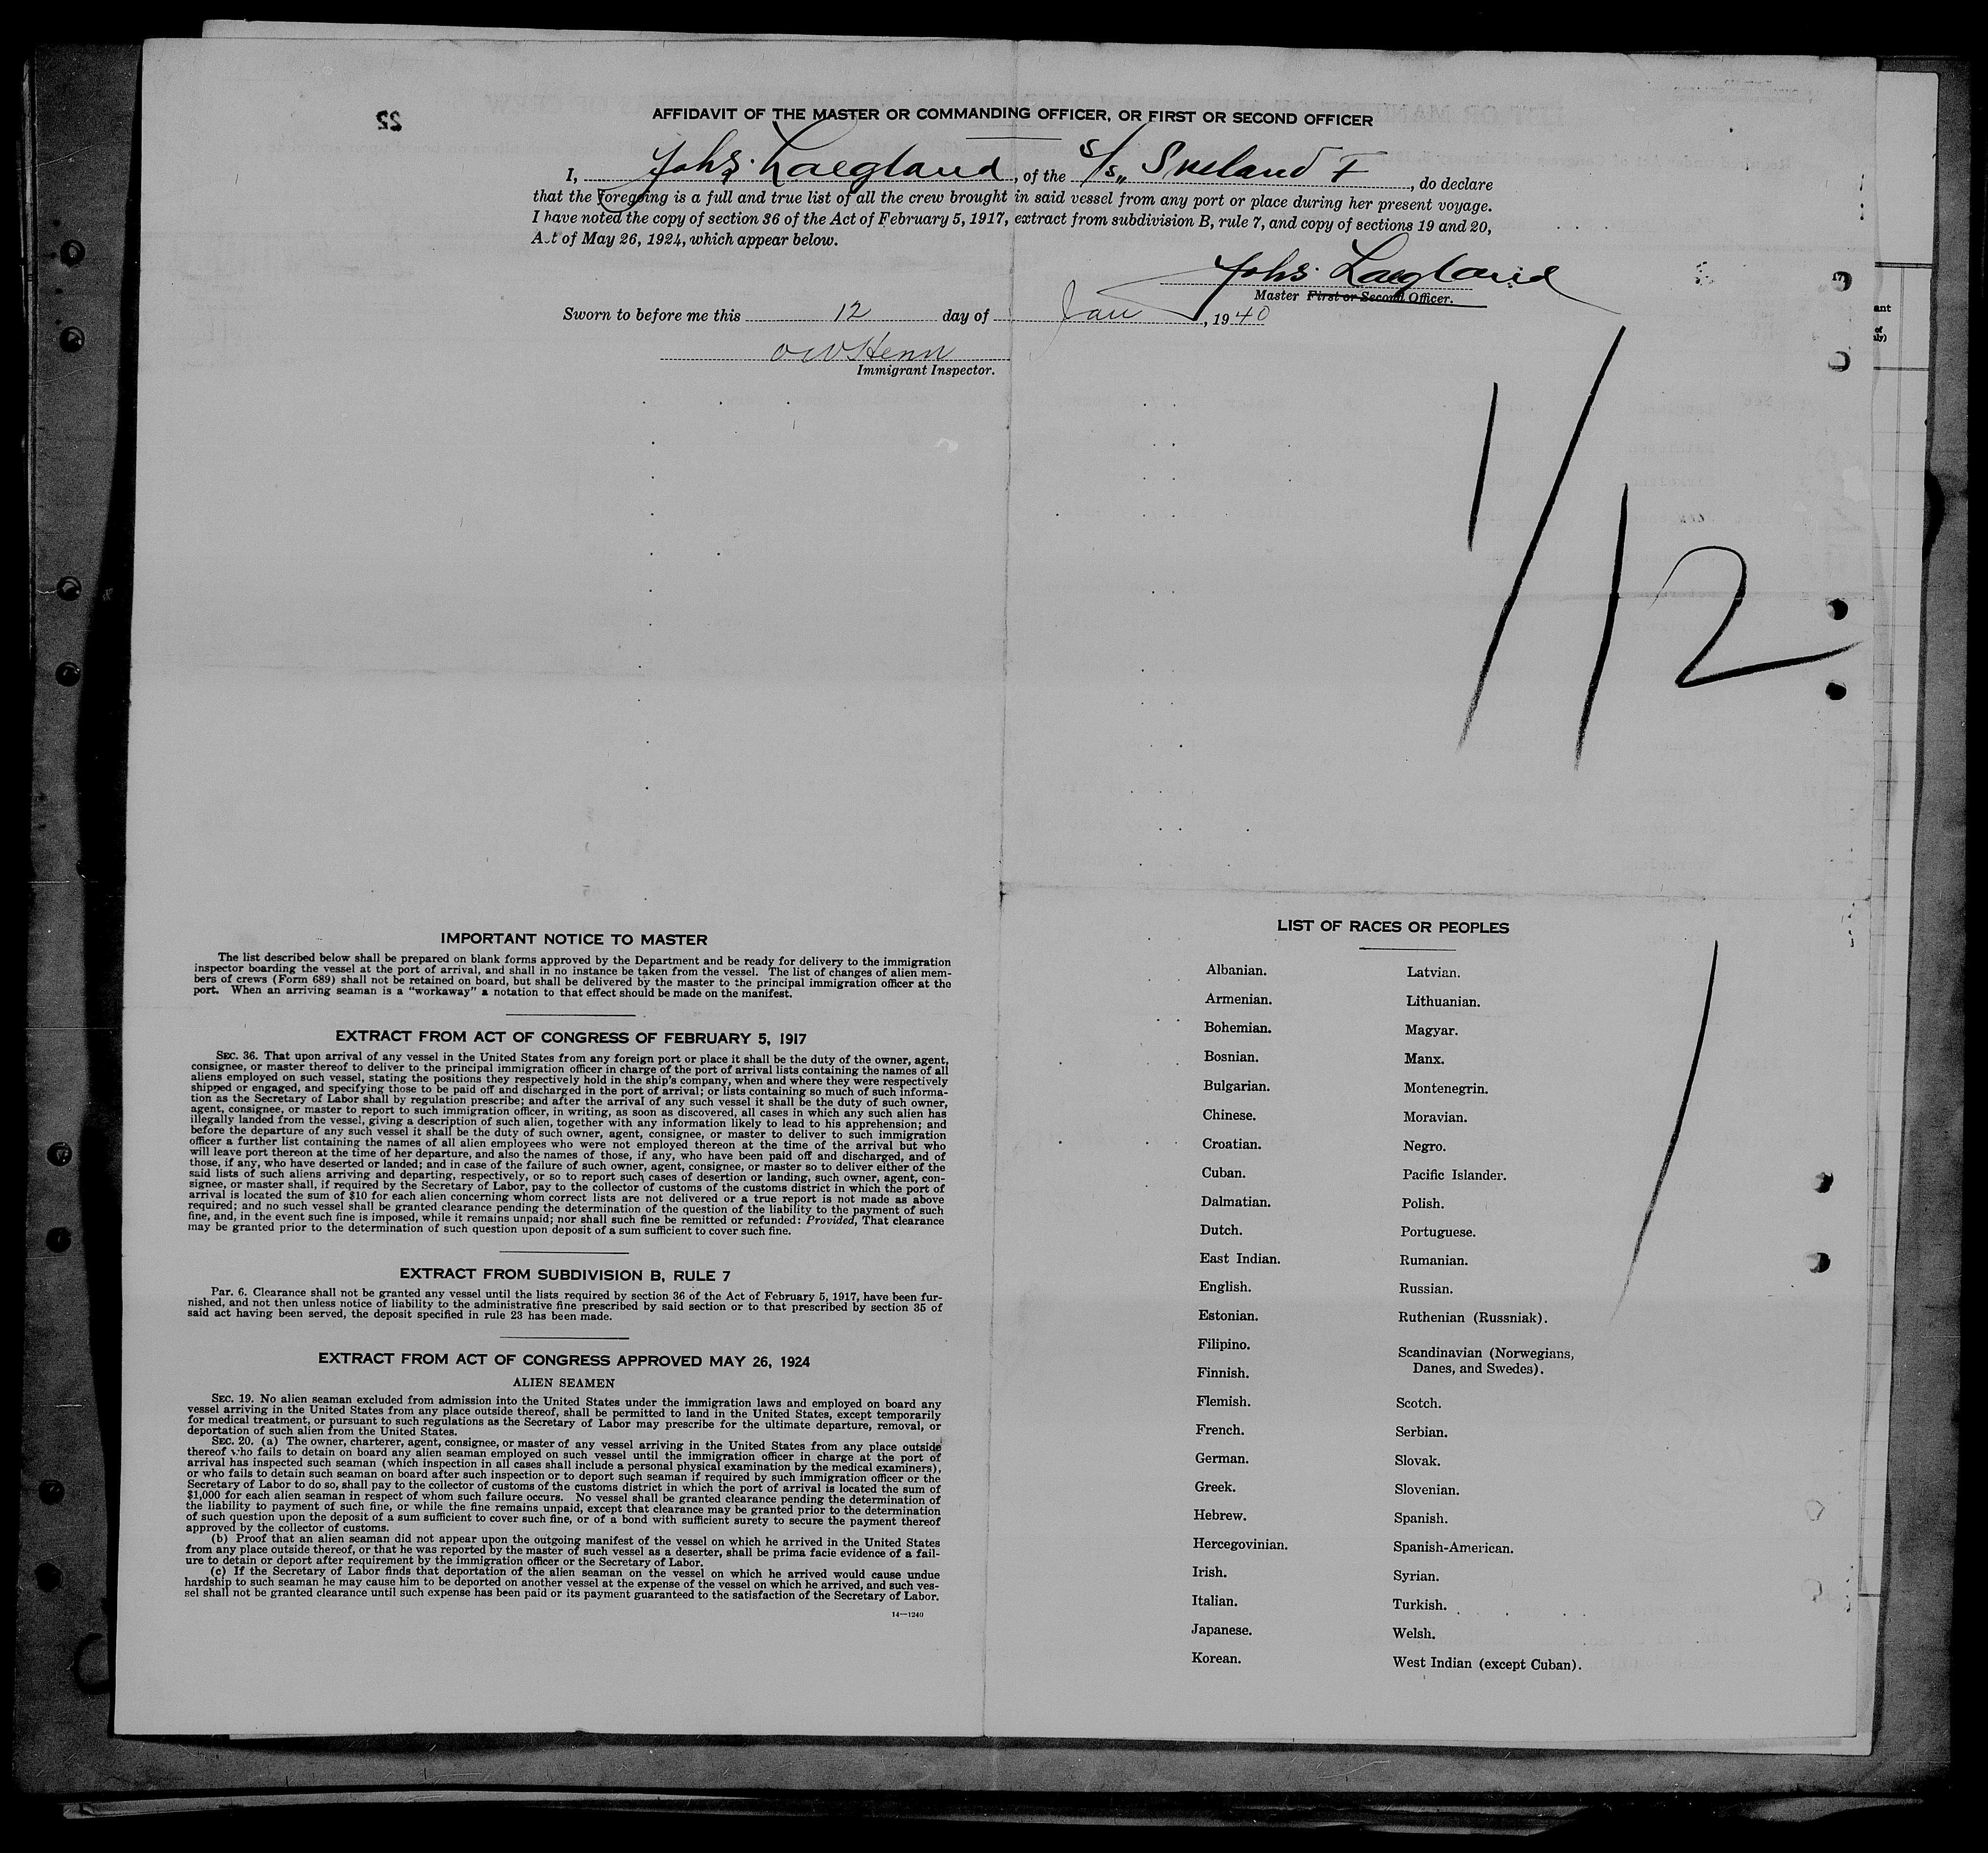 22
AFFIDAVIT OF THE MASTER OR COMMANDING OFFICER, OR FIRST OR SECOND OFFICER
I, Johs. Laegland, of the S/S „ Sneland I, do declare
that the foregoing is a full and true list of all the crew brought in said vessel from any port or place during her present voyage.
I have noted the copy of section 36 of the Act of February 5, 1917, extract from subdivision B, rule 7, and copy of sections 19 and 20,
Act of May 26, 1924, which appear below.
Johs. Laegland
Master First or Second Officer.
Sworn to before me this 12 day of Jan, 1940
O W Henn
Immigrant Inspector.
1/12
IMPORTANT NOTICE TO MASTER
The list described below shall be prepared on blank forms approved by the Department and be ready for delivery to the immigration
inspector boarding the vessel at the port of arrival, and shall in no instance be taken from the vessel. The list of changes of alien mem-
bers of crews (Form 689) shall not be retained on board, but shall be delivered by the master to the principal immigration officer at the
port. When an arriving seaman is a "workaway" a notation to that effect should be made on the manifest.
EXTRACT FROM ACT OF CONGRESS OF FEBRUARY 5, 1917
SEC. 36. That upon arrival of any vessel in the United States from any foreign port or place it shall be the duty of the owner, agent,
consignee, or master thereof to deliver to the principal immigration officer in charge of the port of arrival lists containing the names of all
aliens employed on such vessel, stating the positions they respectively hold in the ship's company, when and where they were respectively
shipped or engaged, and specifying those to be paid off and discharged in the port of arrival; or lists containing so much of such informa-
tion as the Secretary of Labor shall by regulation prescribe; and after the arrival of any such vessel it shall be the duty of such owner,
agent, consignee, or master to report to such immigration officer, in writing, as soon as discovered, all cases in which any such alien has
illegally landed from the vessel, giving a description of such alien, together with any information likely to lead to his apprehension; and
before the departure of any such vessel it shall be the duty of such owner, agent, consignee, or master to deliver to such immigration
officer a further list containing the names of all alien employees who were not employed thereon at the time of the arrival but who
will leave port thereon at the time of her departure, and also the names of those, if any, who have been paid off and discharged, and of
those, if any, who have deserted or landed; and in case of the failure of such owner, agent, consignee, or master so to deliver either of the
said lists of such aliens arriving and departing, respectively, or so to report such cases of desertion or landing, such owner, agent, con-
signee, or master shall, if required by the Secretary of Labor, pay to the collector of customs of the customs district in which the port of
arrival is located the sum of $10 for each alien concerning whom correct lists are not delivered or a true report is not made as above
required; and no such vessel shall be granted clearance pending the determination of the question of the liability to the payment of such
fine, and, in the event such fine is imposed, while it remains unpaid; nor shall such fine be remitted or refunded: Provided, That clearance
may be granted prior to the determination of such question upon deposit of a sum sufficient to cover such fine.
EXTRACT FROM SUBDIVISION B, RULE 7
Par. 6. Clearance shall not be granted any vessel until the lists required by section 36 of the Act of February 5, 1917, have been fur-
nished, and not then unless notice of liability to the administrative fine prescribed by said section or to that prescribed by section 35 of
said act having been served, the deposit specified in rule 23 has been made.
EXTRACT FROM ACT OF CONGRESS APPROVED MAY 26, 1924
ALIEN SEAMEN
SEC. 19. No alien seaman excluded from admission into the United States under the immigration laws and employed on board any
vessel arriving in the United States from any place outside thereof, shall be permitted to land in the United States, except temporarily
for medical treatment, or pursuant to such regulations as the Secretary of Labor may prescribe for the ultimate departure, removal, or
deportation of such alien from the United States.
SEC. 20. (a) The owner, charterer, agent, consignee, or master of any vessel arriving in the United States from any place outside
thereof who fails to detain on board any alien seaman employed on such vessel until the immigration officer in charge at the port of
arrival has inspected such seaman (which inspection in all cases shall include a personal physical examination by the medical examiners),
or who fails to detain such seaman on board after such inspection or to deport such seaman if required by such immigration officer or the
Secretary of Labor to do so, shall pay to the collector of customs of the customs district in which the port of arrival is located the sum of
$1,000 for each alien seaman in respect of whom such failure occurs. No vessel shall be granted clearance pending the determination of
the liability to payment of such fine, or while the fine remains unpaid, except that clearance may be granted prior to the determination
of such question upon the deposit of a sum sufficient to cover such fine, or of a bond with sufficient surety to secure the payment thereof
approved by the collector of customs.
(b) Proof that an alien seaman did not appear upon the outgoing manifest of the vessel on which he arrived in the United States
from any place outside thereof, or that he was reported by the master of such vessel as a deserter, shall be prima facie evidence of a fail-
ure to detain or deport after requirement by the immigration officer or the Secretary of Labor.
(c) If the Secretary of Labor finds that deportation of the alien seaman on the vessel on which he arrived would cause undue
hardship to such seaman he may cause him to be deported on another vessel at the expense of the vessel on which he arrived, and such ves-
sel shall not be granted clearance until such expense has been paid or its payment guaranteed to the satisfaction of the Secretary of Labor.
14—1240
LIST OF RACES OR PEOPLES
Albanian.
Armenian.
Bohemian.
Bosnian.
Bulgarian.
Chinese.
Croatian.
Cuban.
Dalmatian.
Dutch.
East Indian.
English.
Estonian.
Filipino.
Finnish.
Flemish.
French.
German.
Greek.
Hebrew.
Hercegovinian.
Irish.
Italian.
Japanese.
Korean.
Latvian.
Lithuanian.
Magyar.
Manx.
Montenegrin.
Moravian.
Negro.
Pacific Islander.
Polish.
Portuguese.
Rumanian.
Russian.
Ruthenian (Russniak).
Scandinavian (Norwegians,
Danes, and Swedes).
Scotch.
Serbian.
Slovak.
Slovenian.
Spanish.
Spanish-American.
Syrian.
Turkish.
Welsh.
West Indian (except Cuban).